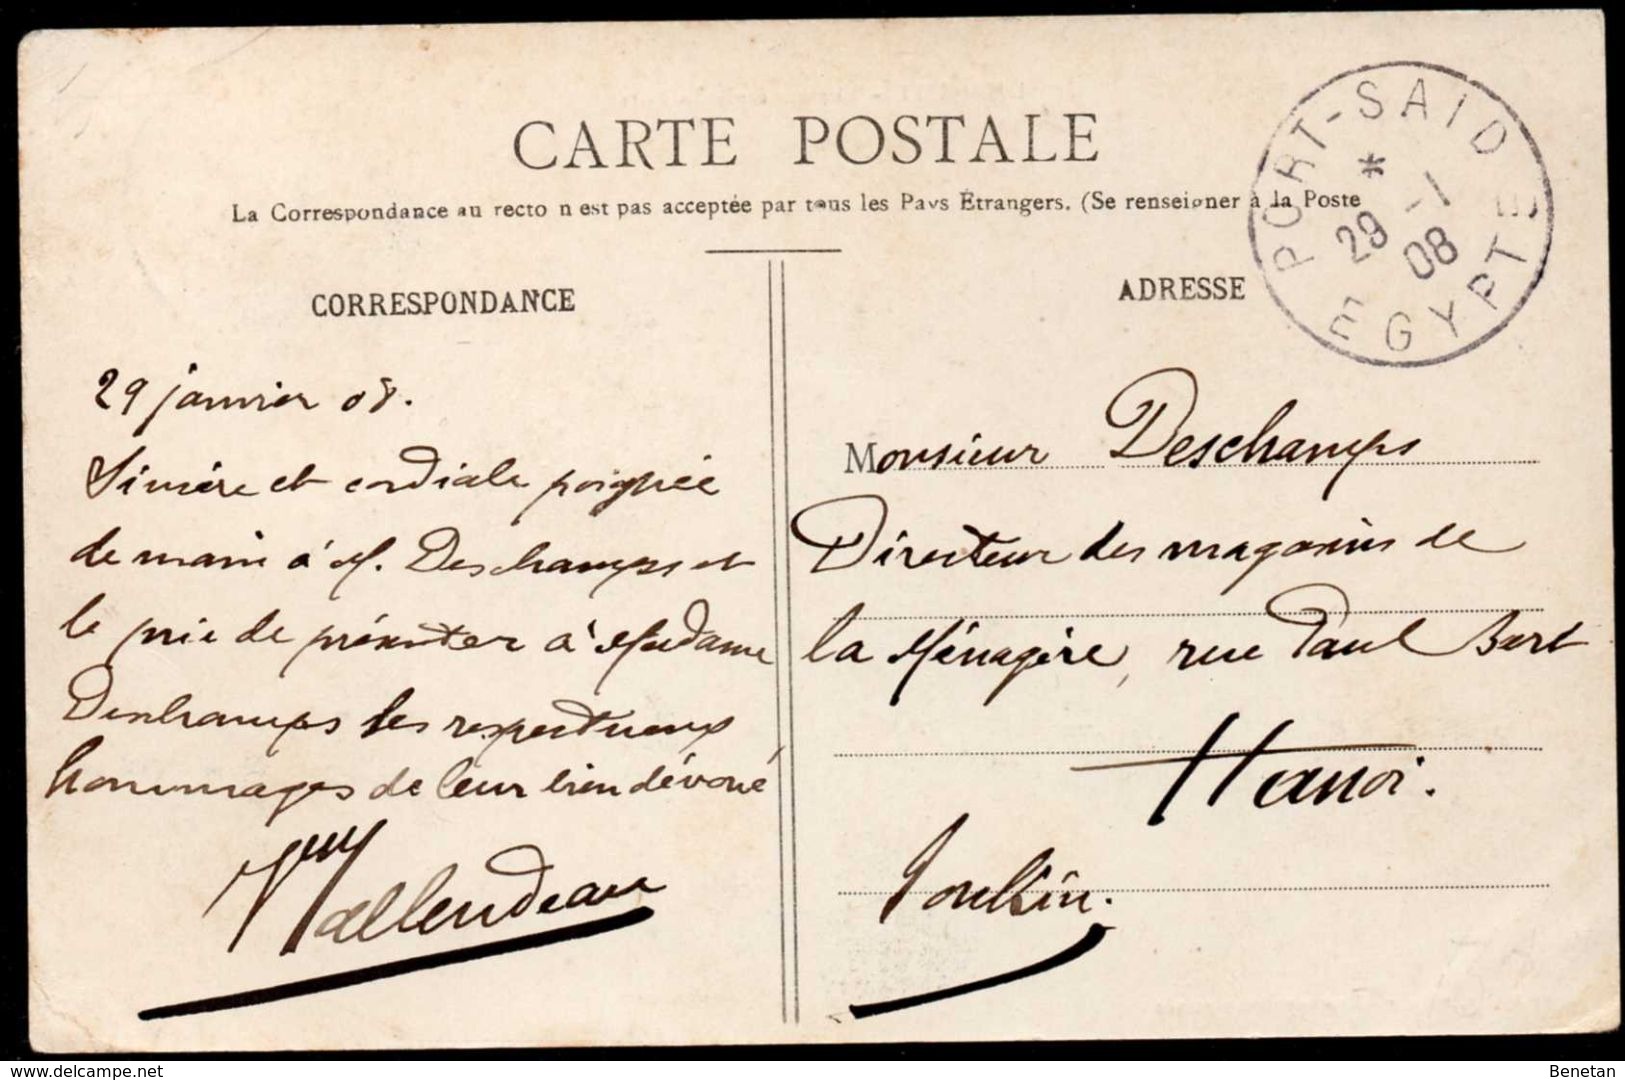 CARTE POSTALE
La Correspondance au recto n'est pas acceptée par tous les Pays Étrangers. (Se renseigner à la Poste
PORT-SAID
*
29 -1
08
EGYPTE
CORRESPONDANCE
ADRESSE
29 janvier 08.
Sincère et cordiale poignée
de main à M. Deschamps et
le prie de présenter à Madame
Deschamps les respectueux
hommages de leur bien dévoué
Monsieur Deschamps
Directeur des magasins de
la Ménagère, rue Paul Bert
Hanoi.
Tonkin.
www.delcampe.net
Benetan